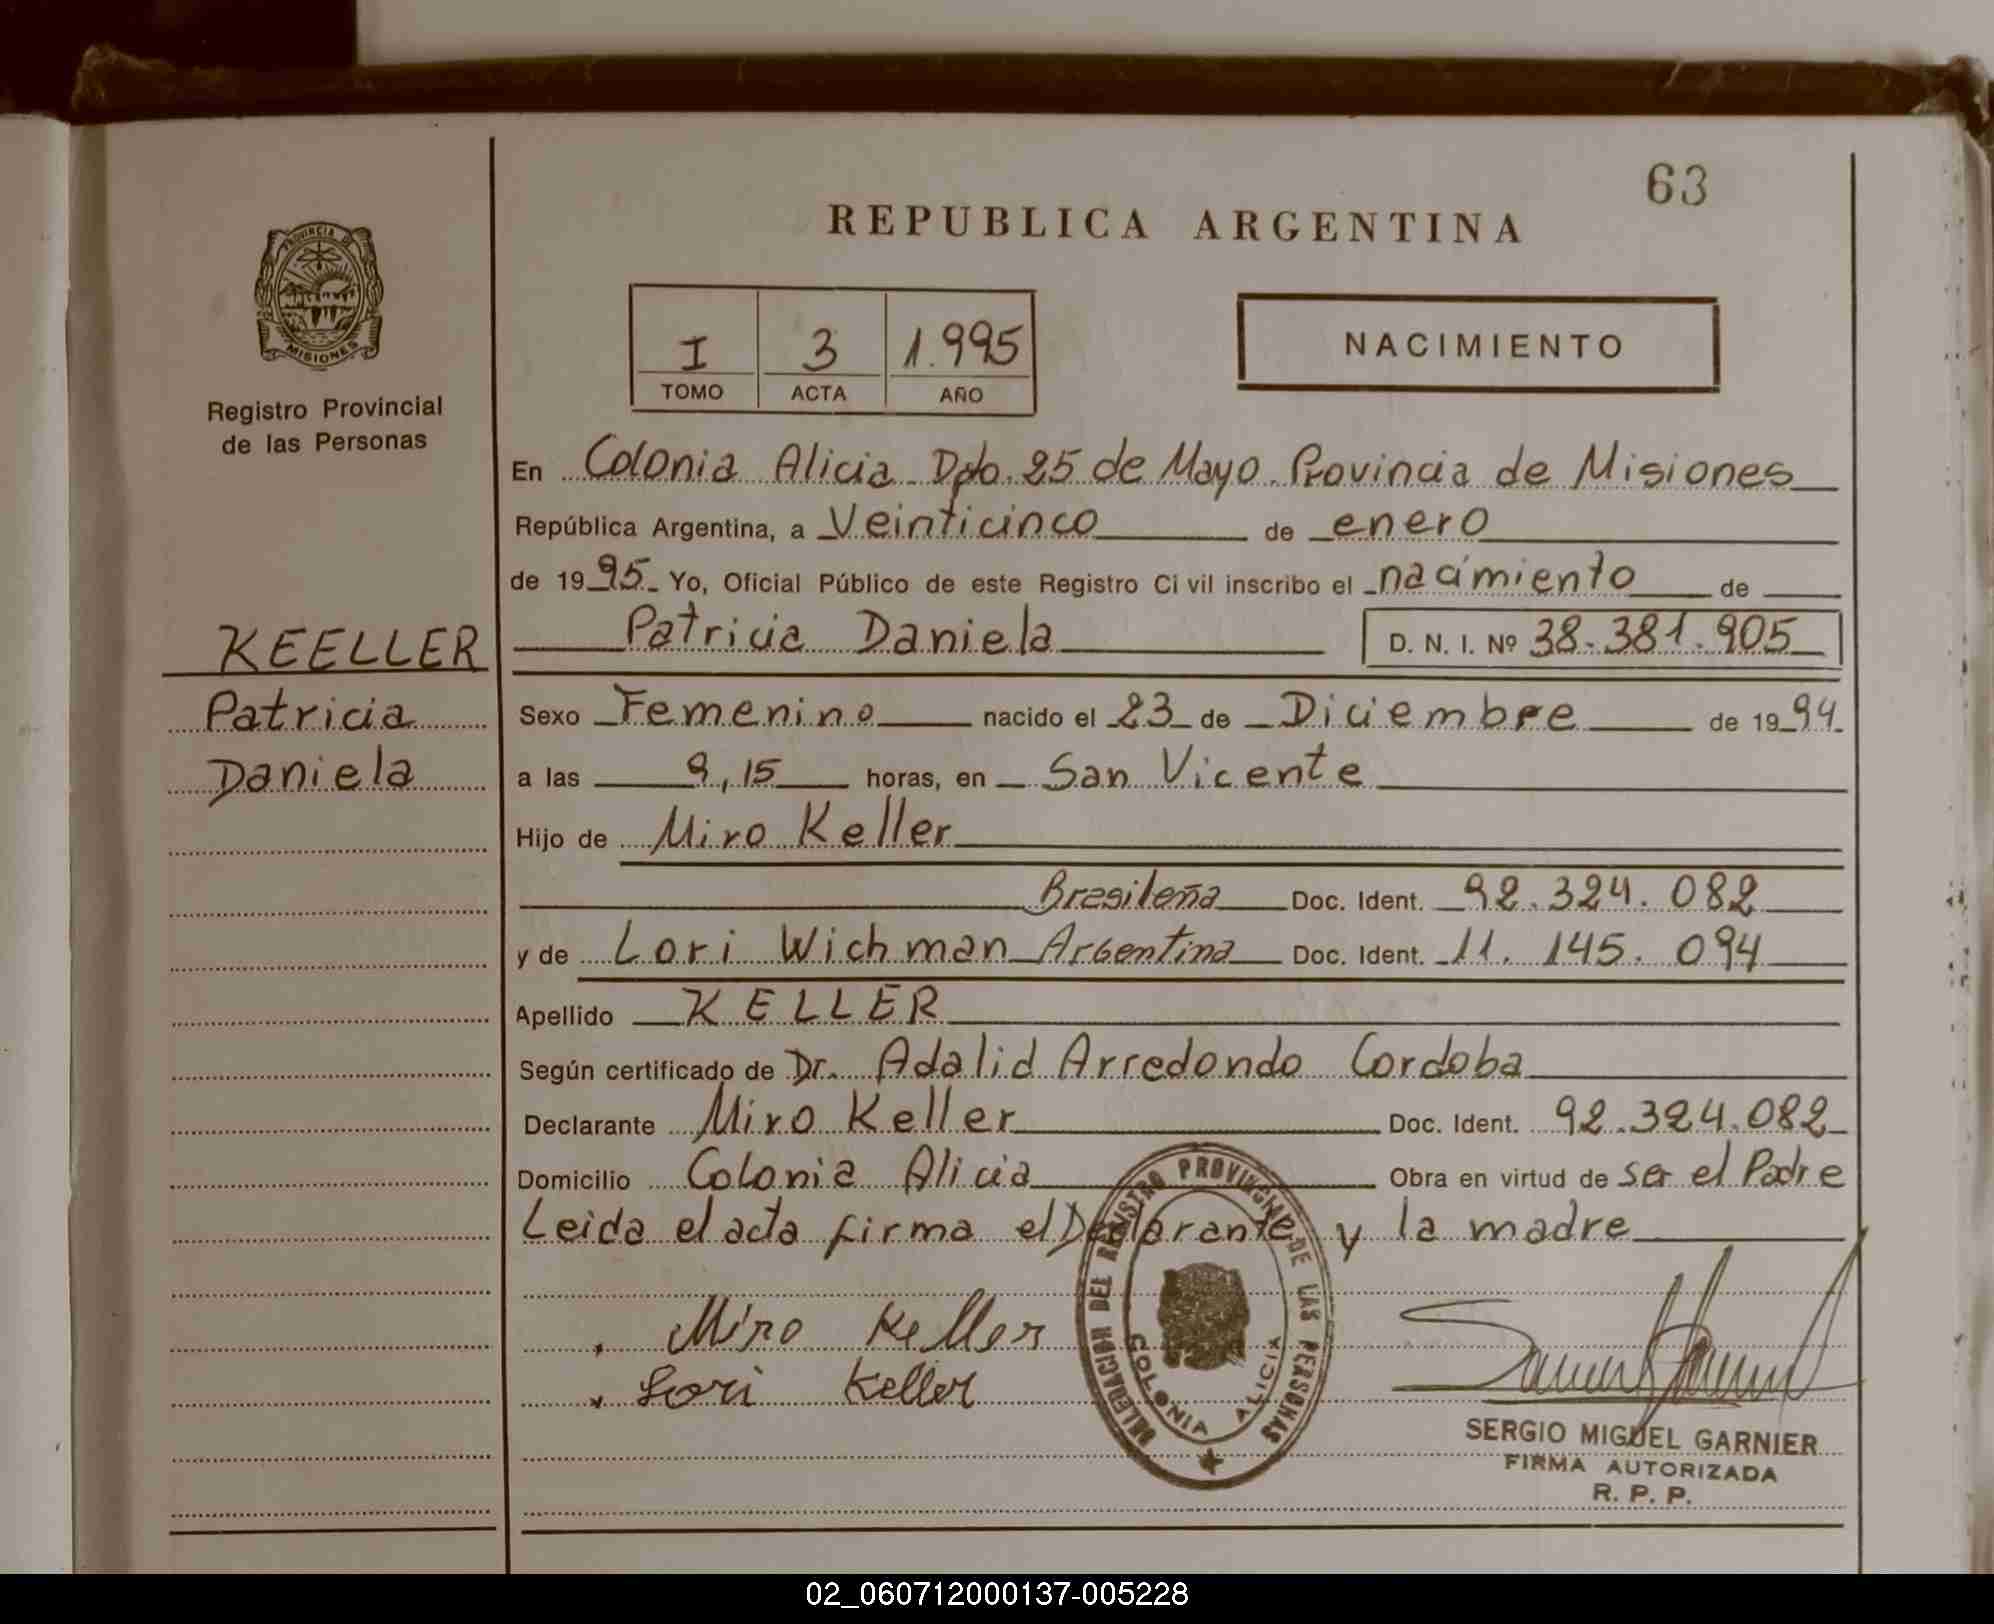 63
REPUBLICA ARGENTINA
PROVINCIA DE
MISIONES
Registro Provincial
de las Personas
I 3 1.995
TOMO ACTA AÑO
NACIMIENTO
En Colonia Alicia Dpto. 25 de Mayo. Provincia de Misiones
República Argentina, a Veinticinco de enero
de 1995 Yo, Oficial Público de este Registro Civil inscribo el nacimiento de
Patricia Daniela D. N. I. Nº 38.381.905
KEELLER
Patricia
Daniela
Sexo Femenino nacido el 23 de Diciembre de 1994
a las 9,15 horas, en San Vicente
Hijo de Miro Keller
Brasileña Doc. Ident. 92.324.082
y de Lori Wichman Argentina Doc. Ident. 11.145.094
Apellido KELLER
Según certificado de Dr. Adalid Arredondo Cordoba
Declarante Miro Keller Doc. Ident. 92.324.082
Domicilio Colonia Alicia Obra en virtud de ser el Padre
Leida el acta firma el Declarante y la madre
Miro Keller
Lori Keller
DELEGACION DEL REGISTRO PROVINCIAL DE LAS PERSONAS
COLONIA ALICIA
SERGIO MIGUEL GARNIER
FIRMA AUTORIZADA
R. P. P.
02_060712000137-005228